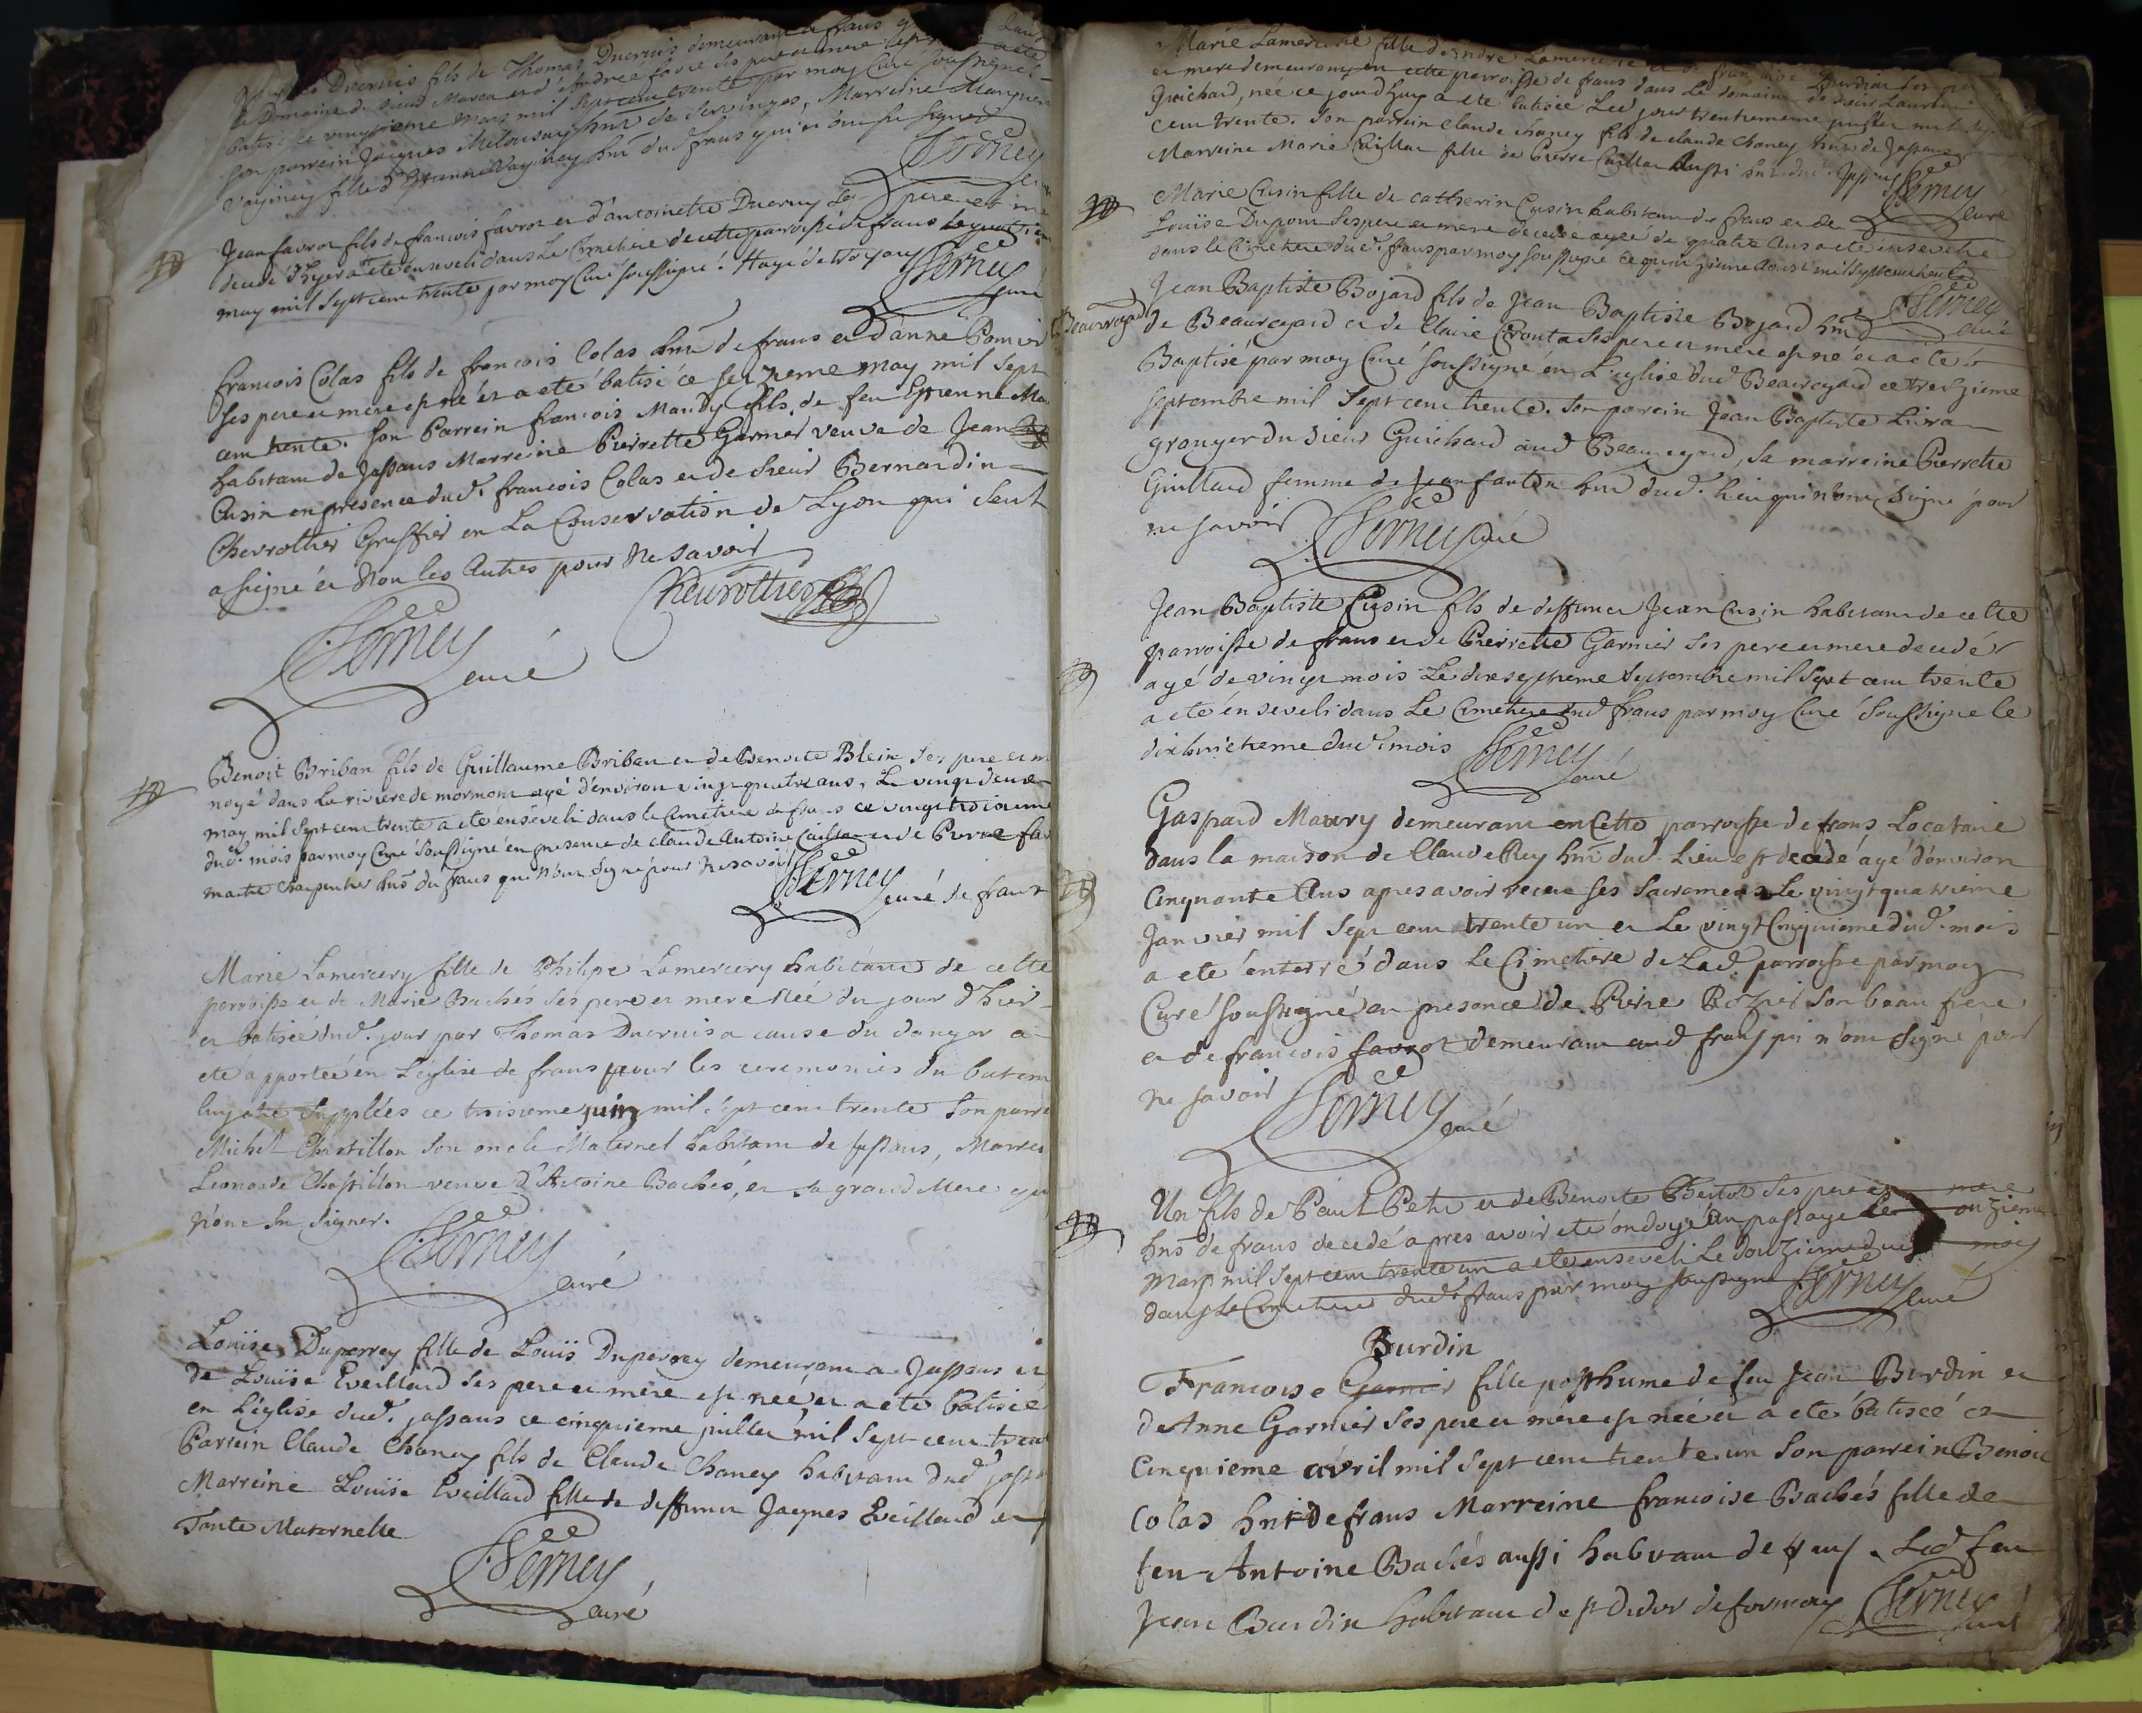 Ducruis fils de Thomas Ducruis demeurant a frans
le Domaine du sieur et d'Andrée favre ses pere et mere a eté
batisé le vingtieme Mars mil sept cent trente par moy Curé soussigné
son parrein Jacques hnt de Marreine Marguer
Vaginey fille d'Etienne Vaginey hnt dud frans qui n'ont su signer
Verney curé
Jean favrot fils de francois favrot et d'antoinette Ducruy ses pere et me
decedé d'hyer a eté enseveli dans Le Cimetiere de cette parroisse de frans le
may mil sept cent trente par moy Curé soussigné. Verney curé
francois Colas fils de francois Colas hnt de frans et d'anne
ses pere et mere est né et a eté batisé ce seizieme may mil sept
cent trente. son Parrein francois Maudy fils de feu Etienne Mau
habitant de Jassans Marreine Pierrette Garnier veuve de Jean
Cusin en presence dud. francois Colas et de sieur Bernardin
Chevrottier Greffier en La Conservation de Lyon qui seul
a signé et Non les Autres pour Ne savoir
Verney curé Chevrottier
Benoit Briban fils de Guillaume Briban et de Benoite Blein ses pere et m
noyé dans La riviere de mormont agé d'environ vingt quatre ans, Le vingt deux
may mil sept cent trente a eté enseveli dans le Cimetiere de frans ce vingt troisieme
dud. mois par moy Curé soussigné en presence de claude Antoine Caillat et de Pierre fav
maitre charpentier hnts du frans qui n'ont signé pour Ne savoir Verney
curé de frans
Marie Lamercery fille de Philipe Lamercery habitant de cette
parroisse et de Marie Bachés ses pere et mere Née du jour d'hier
et batisée dud. jour par Thomas Ducruis a cause du danger a
eté apportée en L'église de frans pour les ceremonies du batem
luy etre suppléés ce troisieme juin mil sept cent trente son parre
Michel Chastillon son oncle Maternel habitant de Jassans, Marrei
Leonarde Chastillon veuve d'Antoine Bachés, et sa grand Mere qui
n'ont su signer.
Verney curé
Louise Duperrey fille de Louis Duperrey demeurant a Jassans et
de Louise Eveillard ses pere et mere est née et a eté batisée
en L'église dud. jassans ce cinquieme juillet mil sept cent tren
Parrein Claude Chaney fils de Claude Chaney habitant dud jassa
Marreine Louise Eveillard fille de deffunct Jacques Eveillard et
Tante Maternelle
Verney curé
Marie Lamercerie fille d'andré Lamercerie et de francoise Bourdin ses pere
et mere demeurant en cette parroisse de frans dans Le domaine de sieur Laurent
Guichard, née ce jourd'huy a eté batisée Led jour trentunieme juillet mil sept
cent trente. Son parrein Claude Chaney fils de claude Chaney hnt de Jassans
Marreine Marie Caillat fille de Pierre Caillat Aussi hnt dud. Jassans Verney curé
Marie Cusin fille de catherin Cusin habitant de frans et de
Louise Dupont ses pere et mere decedée agée de quatre Ans a eté ensevelie
dans le Cimetiere dud. frans par moy soussigné ce quinzieme Aoust mil sept cent trente
Verney curé
Beauregard
Jean Baptiste Bojard fils de Jean Baptiste Bojard hnt
de Beauregard et de Claire ses pere et mere est né et a eté
Baptisé par moy Curé soussigné en L'eglise dud Beauregard ce treizieme
septembre mil sept cent trente. Son parein Jean Baptiste
granger du sieur Guichard aud Beauregard, sa marreine Pierrette
Guillard femme de Jean fantin hnt dud. lieu qui n'ont signé pour
ne savoir Verney curé
Jean Baptiste Cusin fils de deffunct Jean Cusin habitant de cette
parroisse de frans et de Pierrette Garnier ses pere et mere decedé
agé de vingt mois Le dixseptieme Septembre mil sept cent trente
a eté enseveli dans Le Cimetiere dud frans par moy Curé soussigné le
dixhuictieme dud. mois Verney curé
Gaspard Maury demeurant en Cette parroisse de frans Locataire
dans la maison de Claude Rey hnt dud. Lieu est decedé agé d'environ
Cinquante Ans apres avoir receu ses sacremens Le vingt quatrieme
Janvier mil sept cent trente un et Le vingt Cinquieme dud. mois
a eté enterré dans Le Cimetiere de Lad. parroisse par moy
Curé soussigné en presence de Pierre son beau frere
et de francois favrot demeurant aud frans qui n'ont signé pour
ne savoir Verney curé
Un fils de Paul Petit et de Benoite Bertot ses pere et mere
hnts de frans decedé apres avoir eté ondoyé Au passage Le onzieme
Mars mil sept cent trente un a eté enseveli Le douzieme dud mois
dans Le Cimetiere dud. frans par moy soussigné Verney curé
Burdin
Francoise Garnier fille posthume de feu Jean Burdin et
de Anne Garnier ses pere et mere est née et a eté batisée ce
Cinquieme avril mil sept cent trente un son parrein Benoit
Colas hnt de frans Marreine francoise Bachés fille de
feu Antoine Bachés aussi habitant de frans. Led feu
Jean Burdin habitant de st Didier de formans Verney curé